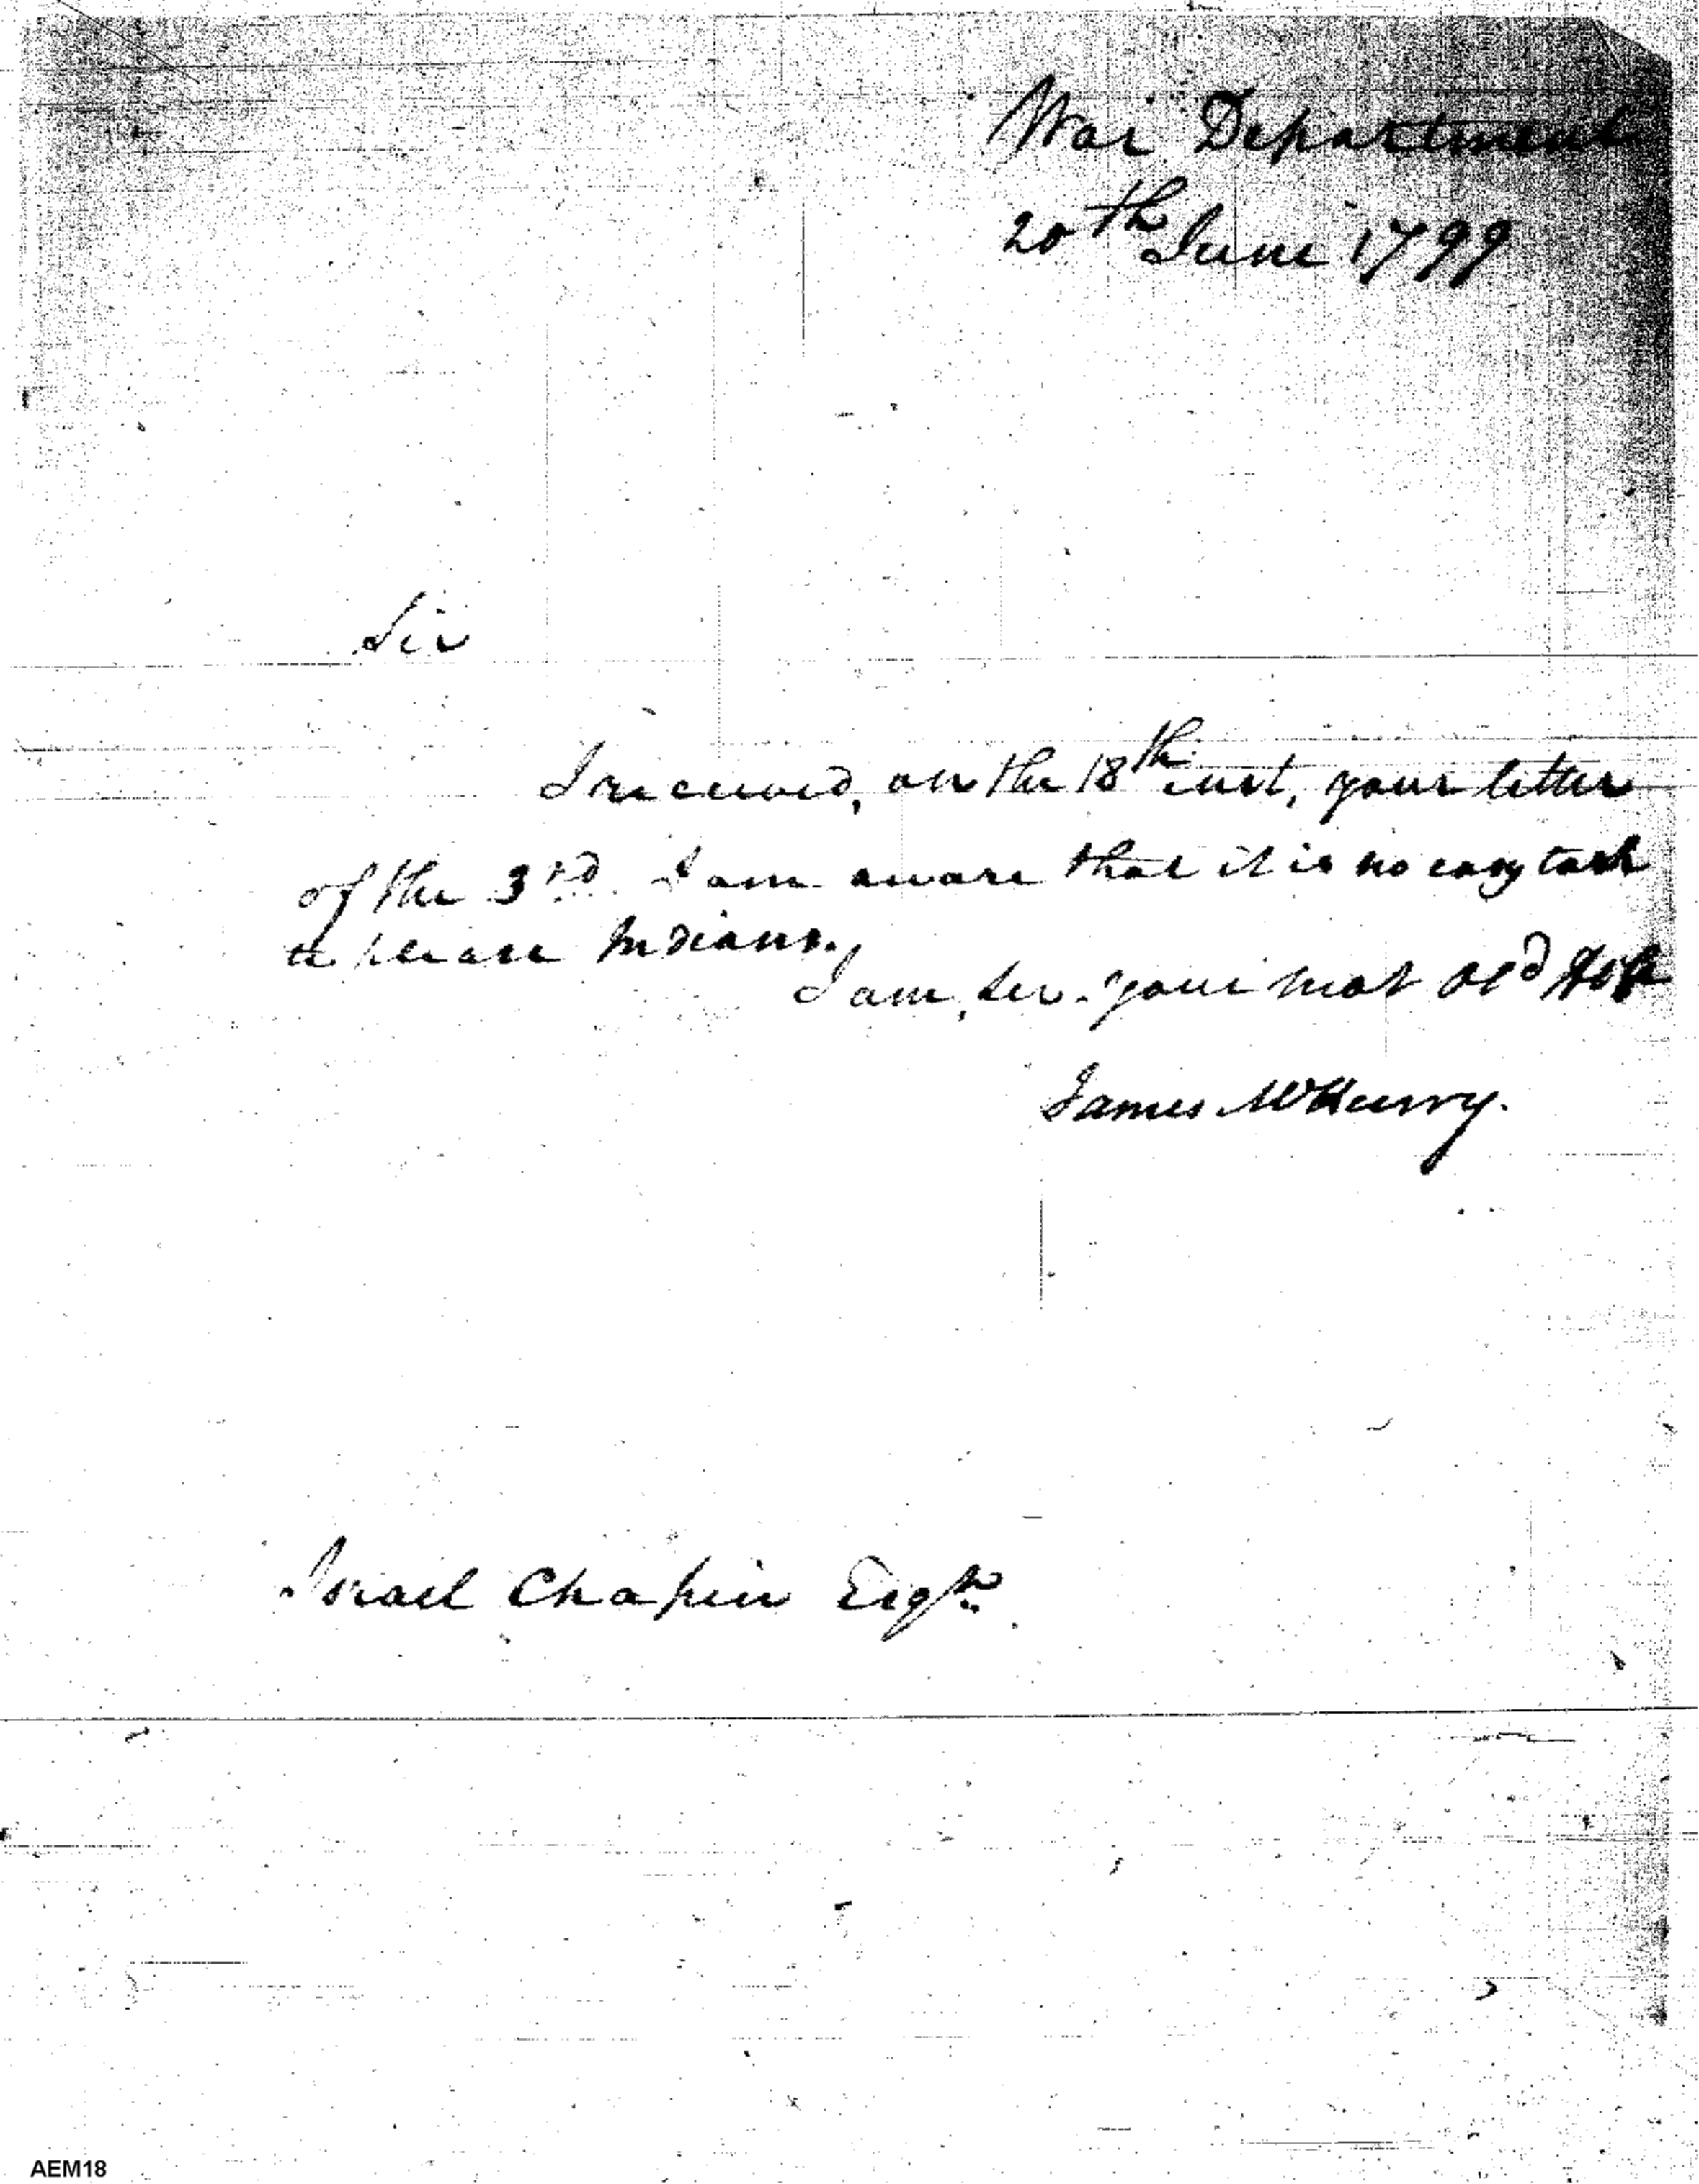 War Department
20th June 1799
Sir
I received, on the 18th inst, your letter
of the 3rd. I am aware that it is no easy task
to please Indians.
I am, Sir. your most obd
James McHenry.
Israel Chapin Esqr.
AEM18